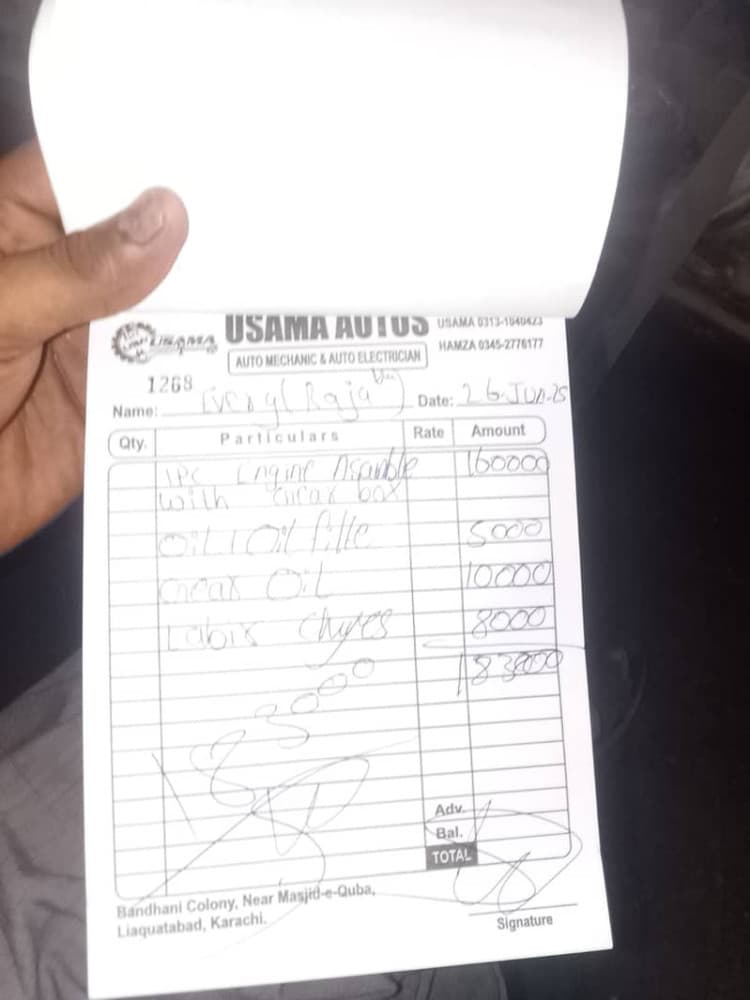 USAMA
USAMA AUTOS
USAMA 0313-1040423
HAMZA 0345-2776177
AUTO MECHANIC & AUTO ELECTRICIAN
1268
Name: (Raja) Date: 26-JUN-25
Qty. Particulars Rate Amount
1PC Engine Asamble 160000
with Gear box
Oil / Oil filte 5000
Gear Oil 10000
Labix Chyres 8000
183000
183000
Adv.
Bal.
TOTAL
Bandhani Colony, Near Masjid-e-Quba,
Liaquatabad, Karachi.
Signature